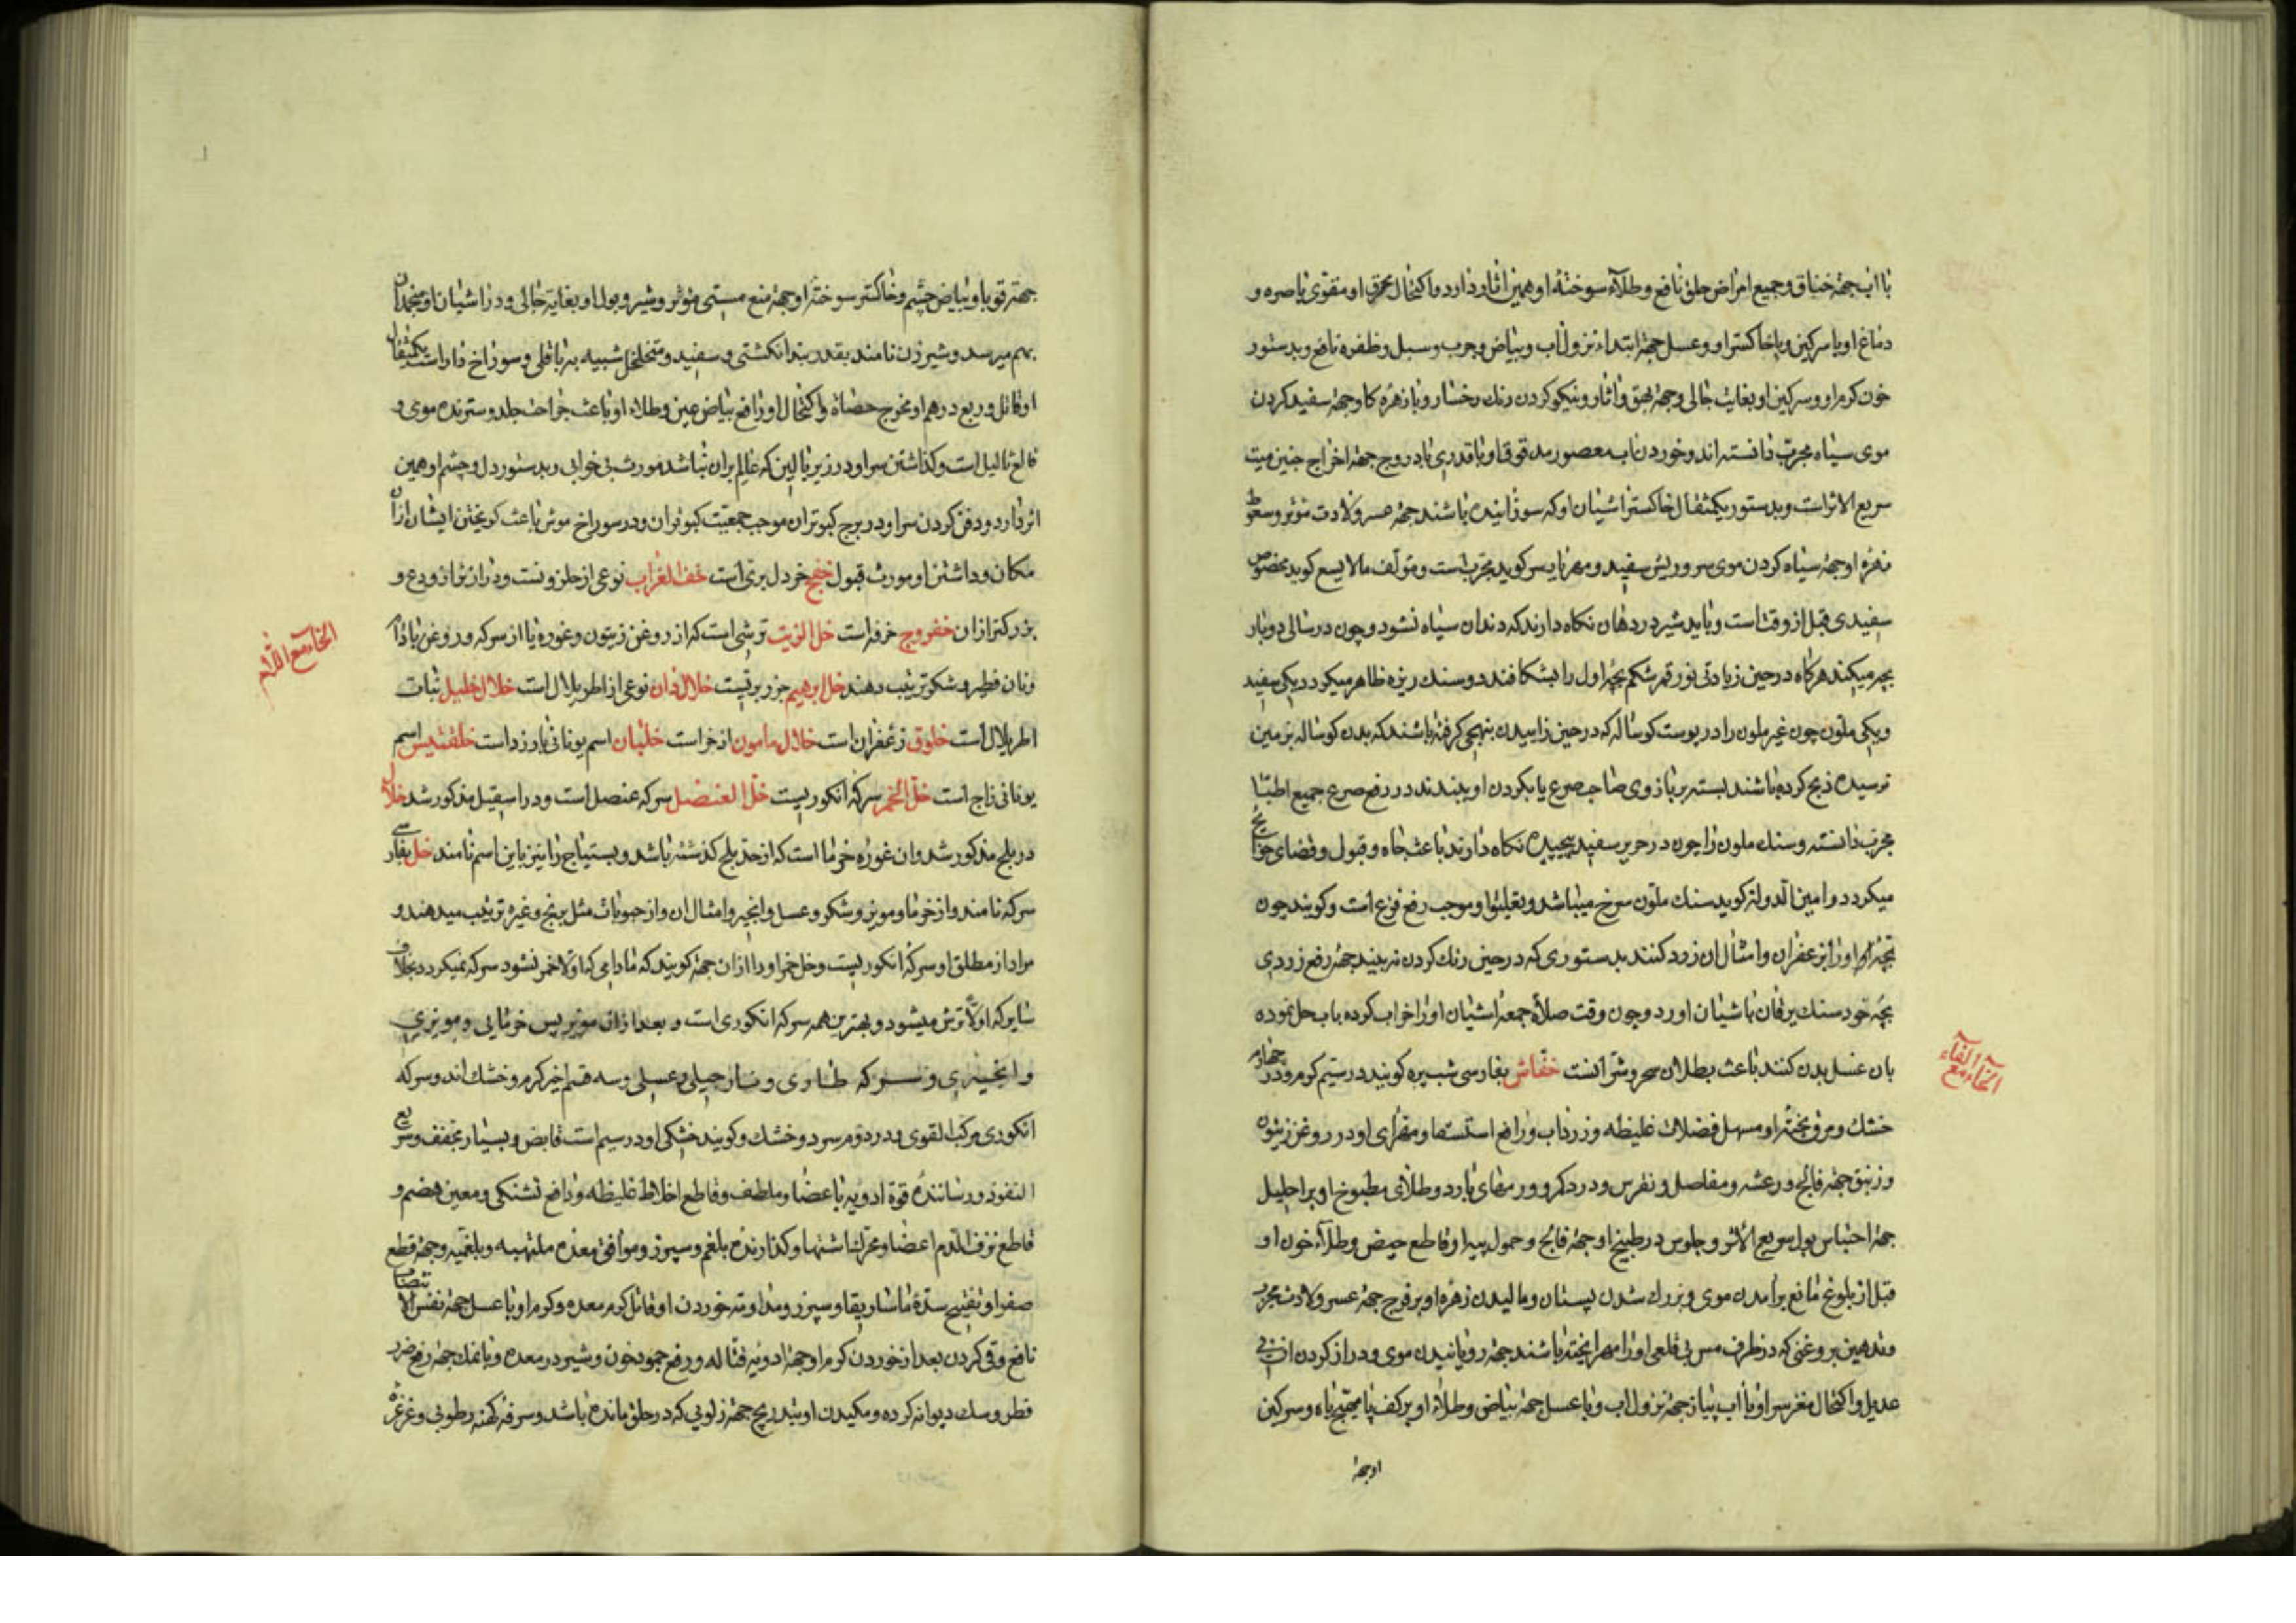 با آب جهة خناق و جمیع امراض حلق نافع و طلاء سوختهٔ او همین اثار دارد و اکتحال محرق او مقوی باصره و
دماغ او با سرکین و یا خاکستر او و عسل جهة ابتداء نزول آب و بیاض و جرب و سبل و ظفره نافع و بدستور
خون کرم او و سرکین او بغایت جالی و جهة بهق و اثار و نیکو کردن رنك رخسار و با زهرهٔ کاو جهة سفید کردن
موی سیاه مجرب دانسته اند و خوردن ناب معصور مدقوق او با قدری بادروج جهة اخراج جنین میت
سریع الاثر است و بدستور یکمثقال خاکستر اشیان او که سوزانیده باشند جهة عسر ولادت مؤثر و سعوط
زهرهٔ او جهة سیاه کردن موی سر و ریش سفید و مهرناریس کوید مجرب است و مؤلف مالایسع کوید مخصوص
سفیدی قبل از وقت است و باید شیر در دهان نکاه دارند که دندان سیاه نشود و چون در سالی دو بار
بچه میکند هرکاه در حین زیادتی نور قمر شکم بچهٔ اول را بشکافند دو سنك ریزه ظاهر میکردد یکی سفید
و یکی ملون چون غیر ملون را در پوست کوساله که در حین زاییدن بنهجی کرفته باشند که بدن کوساله بزمین
نرسیده ذبح کرده باشند بسته بر بازوی صاحب صرع یا بکردن او ببندند در رفع صرع جمیع اطبا
مجرب دانسته و سنك ملون را چون در حریر سفید پیچیده نکاه دارند باعث جاه و قبول و قضای حوائج
میکردد و امین الدوله کوید سنك ملون سرخ میباشد و تعلیق او موجب رفع فزع است و کویند چون
بچهٔ او را بزعفران و امثال ان زرد کنند بدستوری که در حین رنك کردن نه بیند جهة رفع زردی
بچهٔ خود سنك یرقان باشیان اورد و چون وقت صلاة جمعه اشیان او را خراب کرده باب حل نموده
بان غسل بدن کنند باعث بطلان سحر و شر آنست خفاش بفارسی شبپره کویند در سیم کرم و در چهارم
الخاء مع الفاء
خشك و مرق پختهٔ او مسهل فضلات غلیظه و زرداب و رافع استسقا و مهرای او در روغن زیتون
و زنبق جهة فالج و رعشه و مفاصل و نقرس و درد کمر و ورمهای بارد و طلای مطبوخ او بر احلیل
جهة احتباس بول سریع الاثر و جلوس در طبیخ او جهة فالج و حمول پیه او قاطع حیض و طلاء خون او
قبل از بلوغ مانع برامدن موی و بزرك شدن پستان و مالیدن زهرهٔ او بر فرج جهة عسر ولادت مجرب
و تدهین بروغنی که در ظرف مس بی قلعی او را مهرا پخته باشند جهة رویانیدن موی و دراز کردن ان بی
عدیل و اکتحال مغز سر او با آب پیاز جهة نزول اب و با عسل جهة بیاض و طلاء او بر کف پا مهیج باه و سرکین
او جهة
جهة قوبا و بیاض چشم و خاکستر سوختهٔ او جهة منع مستی مؤثر و شیر و بول او بغایت جالی و در اشیان او منجمدان
بهم میرسد و شیر زن نامند بقدر بند انکشتی و سفید و متخلخل شبیه به باقلی و سوراخ دار است یکمثقال
او قاتل و ربع درهم او مخرج حصاة و اکتحال او رافع بیاض عین و طلاء او باعث جراحت جلد و سترنده موی و
قالع ثالیل است و کذاشتن سر او در زیر بالین که عالم بران نباشد مورث بی خوابی و بدستور دل و چشم او همین
اثر دارد و دفن کردن سر او در برج کبوتران موجب جمعیت کبوتران و در سوراخ موش باعث کریختن ایشان ازان
مکان و داشتن او مورث قبول خفج خردل بری است خف الغراب نوعی از حلزونست و درازتر از ودع و
بزرکتر ازان خفروج خرفه است خل الزیت ترشی است که از روغن زیتون و غوره یا از سرکه و روغن بادام
الخاء مع اللام
و نان فطیر و شکر ترتیب دهند خل ابرهیم جزر بریست خلال دان نوعی از اطریلال است خلال خلیل نبات
اطریلال است خلوق زعفران است خلال مامون اذخر است خلبان اسم یونانی بارزد است خلقتیس اسم
یونانی زاج است خل الخمر سرکهٔ انکوریست خل العنصل سرکه عنصل است و در اسقیل مذکور شد خلال
در بلح مذکور شد و ان غورهٔ خرما است که از حد بلح کذشته باشد و بستیاج را نیز باین اسم نامند خل بفارسی
سرکه نامند و از خرما و مویز و شکر و عسل و انجیر و امثال ان و از حبوبات مثل برنج و غیره ترتیب میدهند و
مراد از مطلق او سرکهٔ انکوریست و خل خمر او را ازان جهة کویند که مادامی که اولا خمر نشود سرکه نمیکردد بخلاف
سایر که اولا ترش میشود و بهترین همه سرکه انکوری است و بعد ازان مویز پس خرمایی و مویزی
و انجیری و سرکه طاری و نارجیلی و عسلی و سه قسم اخیر کرم و خشك اند و سرکه
انکوری مرکب القوی و در دوم سرد و خشك و کویند خشکی او در سیم است قابض و بسیار مجفف و سریع
النفوذ و رسانندهٔ قوة ادویه باعضا و ملطف و قاطع اخلاط غلیظه و رافع تشنکی و معین هضم و
قاطع نزف الدم اعضا و محرك اشتها و کدازنده بلغم و سپرز و موافق معده ملتهبه و بلغمیه و جهة قطع
صفرا و تفتیح سدهٔ ماساریقا و سپرز و مداومت خوردن او قاتل کرم معده و کرم او با عسل جهة نفس الانتصاب
نافع و قی کردن بعد از خوردن کرم او جهة ادویه قتاله و رفع جمود خون و شیر در معده و با نمك جهة رفع ضرر
فطر و سك دیوانه کرده و مکیدن او بتدریج جهة زلویی که در حلق مانده باشد و سرفه کهنه رطوبی و غرغرهٔ